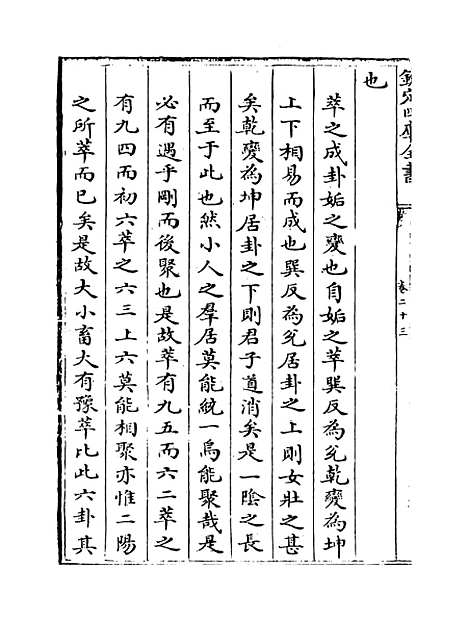 欽定四庫全書
卷二十三
也
萃之成卦姤之變也自姤之萃巽反為兌乾變為坤
上下相易而成也巽反為兌居卦之上則女壯之甚
矣乾變為坤居卦之下則君子道消矣是一陰之長
而至于此也然小人之羣居莫能統一焉能聚哉是
必有遇乎剛而後聚也是故萃有九五而六二萃之
有九四而初六萃之六三上六莫能相聚亦惟二陽
之所萃而已矣是故大小畜大有豫萃比此六卦其